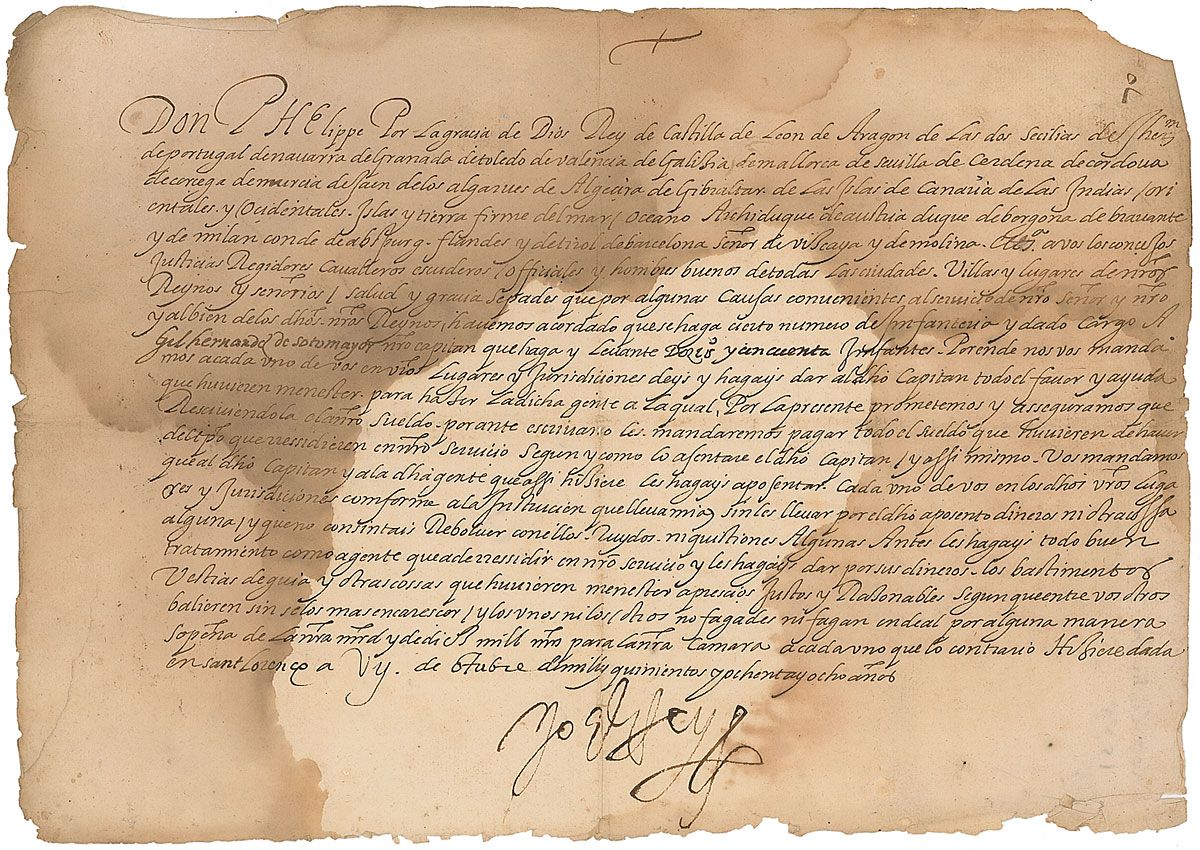 Don PHElippe Por La gracia de Dios Rey de Castilla de Leon de Aragon de Las dos Secilias de Jheᵐ
de portugal de navarra de Granada de toledo de valencia de Galizia, de mallorca de sevilla de Cerdena de cordova
de corcega de murcia de Jaen de los algarves de Algecira de Gibraltar de Las Islas de Canaria de Las Indias / ori
entales. y / Ocidentales. Islas y tierra firme del mar / Oceano Archiduque de austria duque de borgoña de bravante
y de milan conde de abspurg. flandes y de tirol de barcelona señor de viscaya y de molina. etcª. a vos los concejos
Justicias Regidores Cavalleros escuderos / officiales y hombres buenos de todas Las ciudades. Villas y lugares de nros
Reynos y señorios / salud y gracia Sepades que por algunas Causas convenientes al servicio de nro Señor y nro
y al bien de los dhos. nros Reynos, havemos acordado que se haga cierto numero de Infanteria y dado Cargo A
Gil hernandez de sotomayor nro capitan que haga y Levante y cincuenta Infantes. Por ende nos vos manda
mos a cada vno de vos en vros Lugares y Jurisdiciones deys y hagays dar al dho Capitan todo el favor y ayuda
que huvieren menester. para haser La dicha gente a La qual, Por La presente prometemos y asseguramos que
a nro sueldo. por ante escrivano les. mandaremos pagar todo el sueldo que huvieren de haver
del tpo que ressidieren en nro servicio segun y como lo asentare el dho Capitan / y assi mismo. Vos mandamos
que al dho Capitan y a la dha gente que assi hisiere les hagays aposentar. Cada vno de vos en los dhos vros luga
res y Jurisdiciones comforme a la Instrucion que llevaren, sin les llevar por el dho aposento dineros ni otra cossa
alguna, y que no consintais Rebolver con ellos. Ruydos. ni quistiones Algunas Antes les hagays todo buen
tratamiento como a gente que a de ressidir en nro servicio y les hagays dar por sus dineros. los bastimentos
Vestias de guia y otras cossas que huvieren menester a precios Justos y Rasonables segun que entre vosotros
balieren sin selos mas encarescer / y los vnos ni los / otros no fagades ni fagan en de al por alguna manera
so pena de La nra mrd y de diez mill mrs para La nra Camara a cada vno que lo contrario Hisiere dada
en sant Lorenço a Vij. de otubre de mill y quinientos y ochenta y ocho años
Yo el Rey